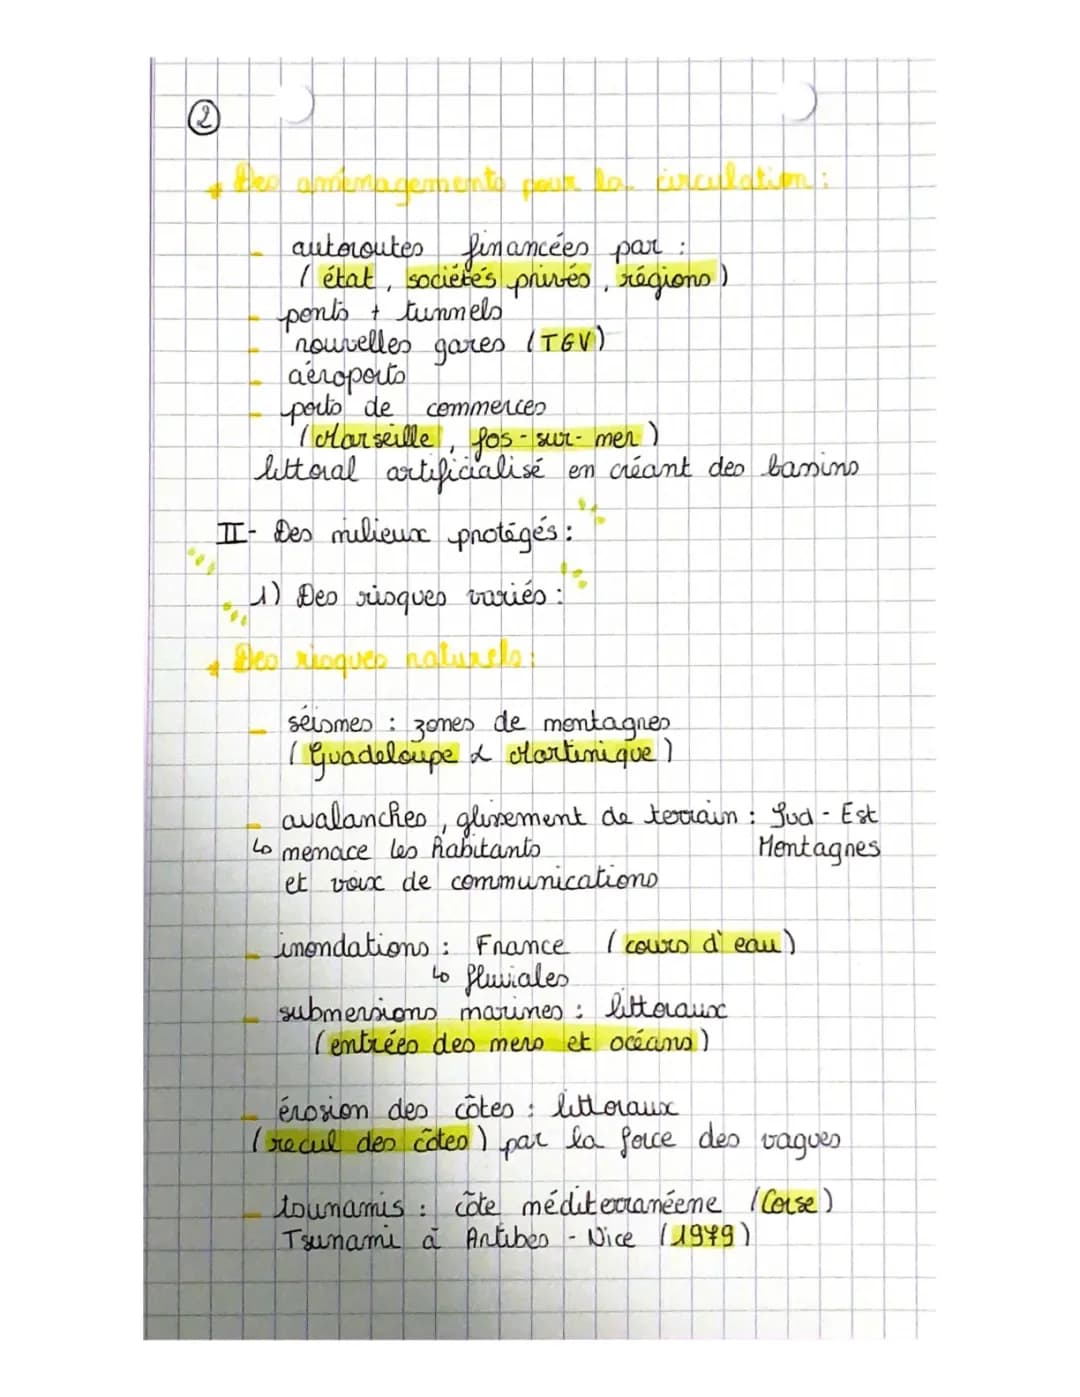 ②
Des aménagements pour la circulation :
- autoroutes financées par :
( état, sociétés privés, régions )
- ponts + tunnels
- nouvelles gares (TGV)
- aéroports
- ports de commerces
( Marseille, fos-sur-mer )
littoral artificialisé en créant des bassins
II- Des milieux protégés :
1) Des risques variés :
Des risques naturels :
- séismes : zones de montagnes
( Guadeloupe & Martinique )
- avalanches, glissement de terrain : Sud-Est
↳ menace les habitants Montagnes
et voix de communications
- inondations : France ( cours d'eau )
↳ fluviales
- submersions marines : littoraux
( entrées des mers et océans )
- érosion des côtes : littoraux
( recul des côtes ) par la force des vagues
- tsunamis : côte méditerranéene ( Corse )
Tsunami à Antibes - Nice ( 1979 )